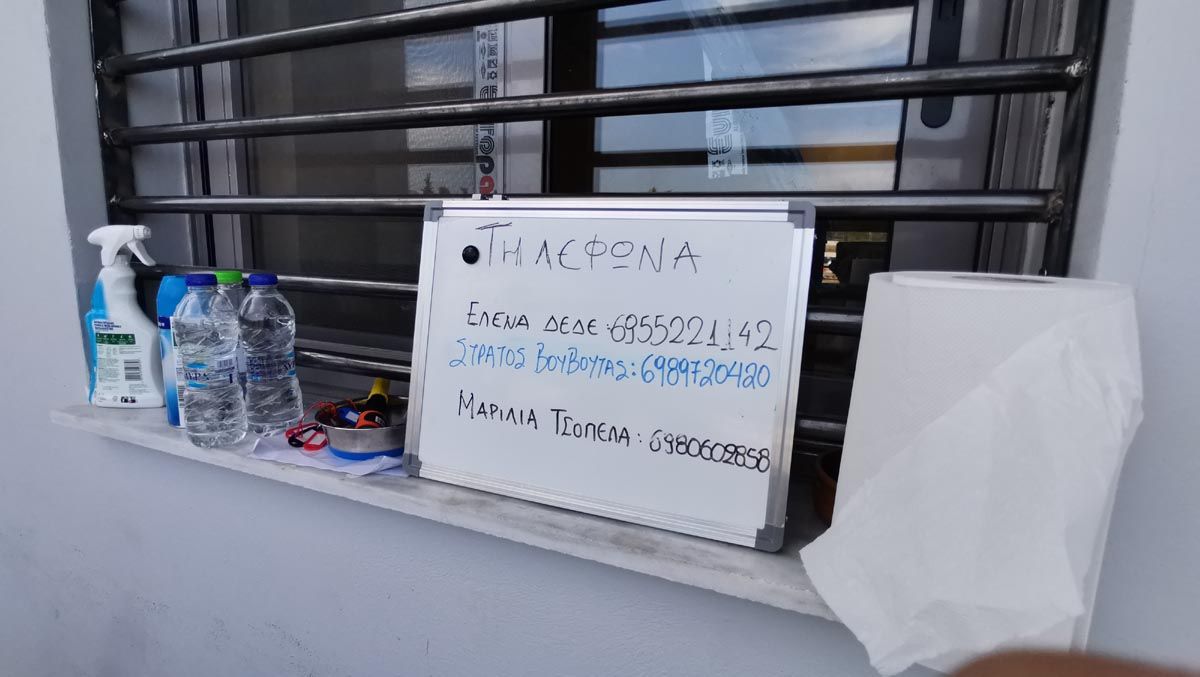 ΤΗΛΕΦΩΝΑ
ΕΛΕΝΑ ΔΕΔΕ: 6955221142
ΣΤΡΑΤΟΣ ΒΟΥΒΟΥΤΑΣ: 6989720420
ΜΑΡΙΛΙΑ ΤΣΟΠΕΛΑ: 6980602858